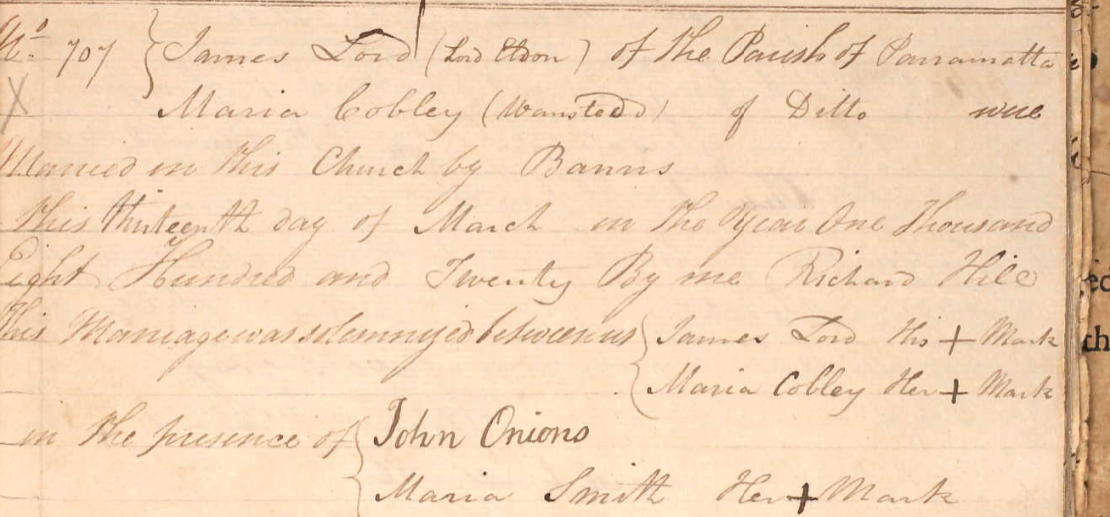 No. 707 { James Lord (Lord Eldon) of the Parish of Parramatta
X Maria Cobley (Wanstedd) of Ditto were
Married in this Church by Banns
this thirteenth day of March in the Year One Thousand
Eight Hundred and Twenty By me Richard Hill
This Marriage was solemnized between us { James Lord His + Mark
Maria Cobley Her + Mark
in the presence of { John Onions
Maria Smith Her + Mark